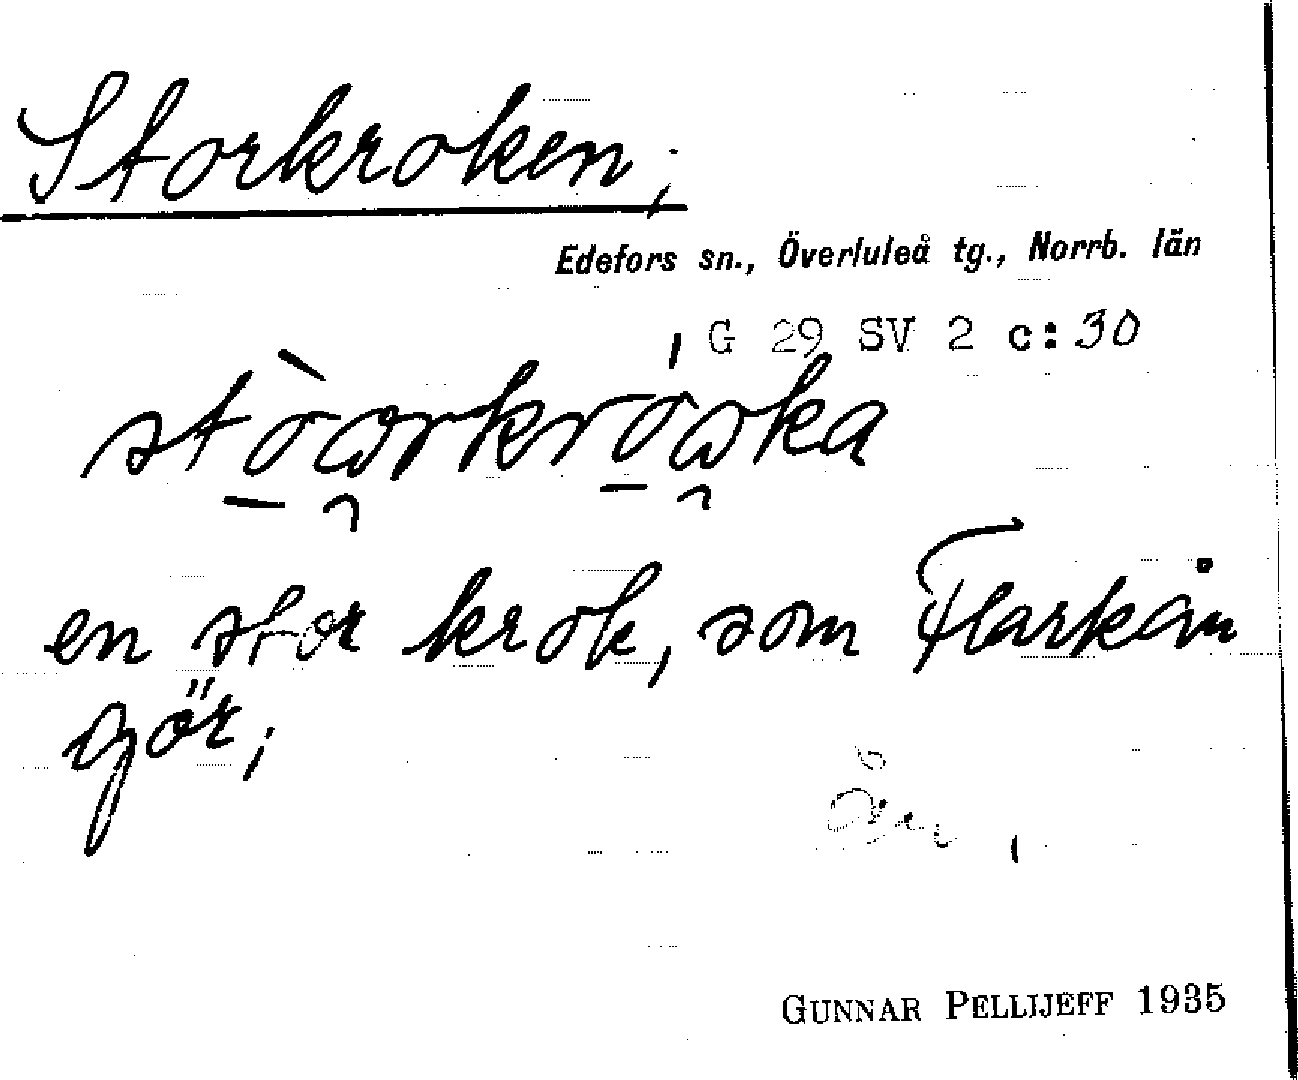 Storkroken;
Edefors sn., Överluleå tg., Norrb. län
G 29 SV 2 c:30
stòω̯rkróω̯ka
en stor krok, som Flarkån
gör;
Ån
GUNNAR PELLIJEFF 1935